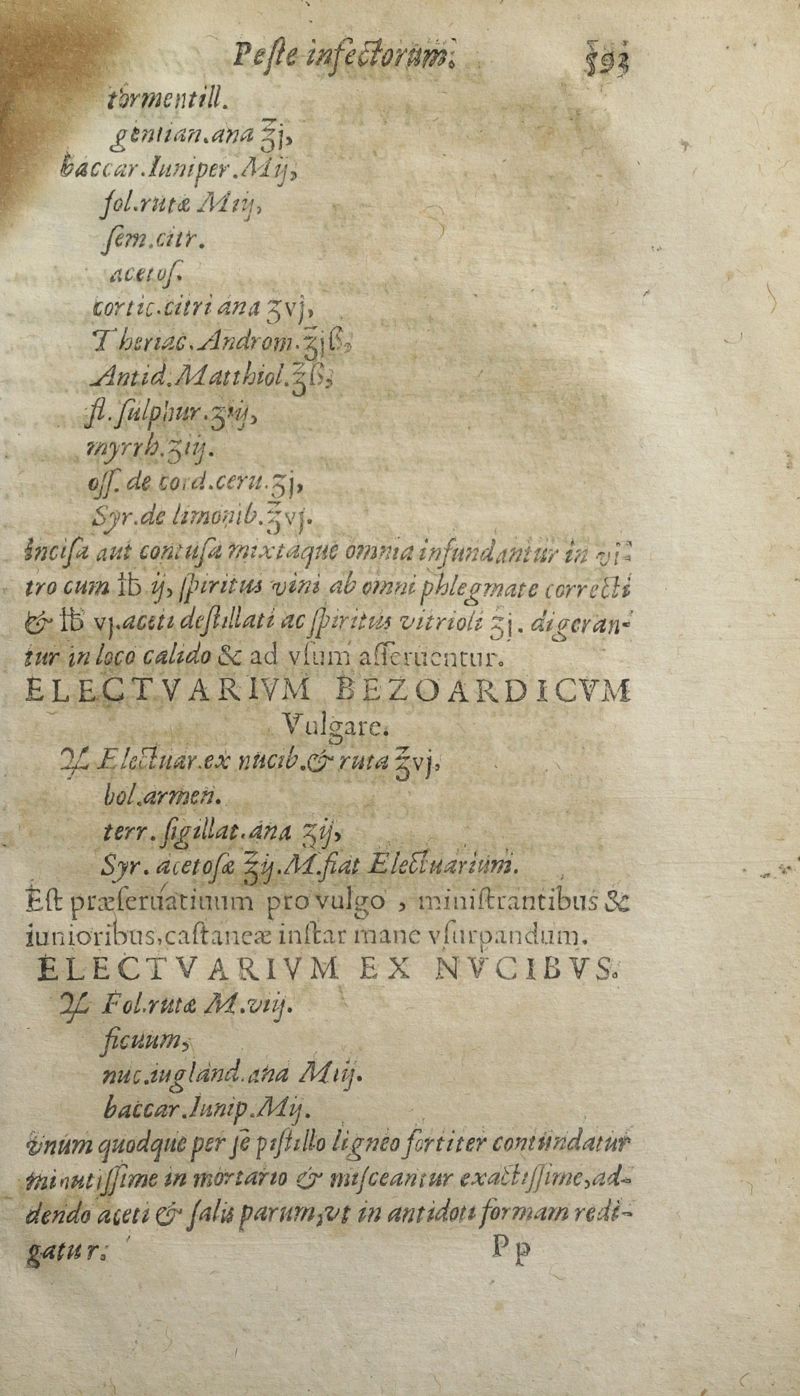 Peſte infectorum. 593
tormentill.
gentian. ana ℥j,
baccar. Iuniper. Mij,
fol. rutæ Miij,
ſem. citr.
acetoſ.
cortic. citri ana ʒvj,
Theriac. Androm. ℥jß,
Antid. Matthiol. ℥ß,
fl. ſulphur. ʒiij,
myrrh. ʒiij.
oſſ. de cord. ceru. ʒj,
Syr. de limonib. ℥vj.
Inciſa aut contuſa mixtaque omnia infundantur in vi-
tro cum ℔ ij, ſpiritus vini ab omni phlegmate correcti
& ℔ vj. aceti deſtillati ac ſpiritus vitrioli ʒj. digeran-
tur in loco calido & ad vſum aſſeruentur.
ELECTVARIVM BEZOARDICVM
Vulgare.
℞ Electuar. ex nucib. & ruta ℥vj,
bol. armen.
terr. ſigillat. ana ʒij,
Syr. acetoſæ ℥ij. M. fiat Electuarium.
Eſt præſeruatiuum pro vulgo , miniſtrantibus &
iunioribus, caſtaneæ inſtar mane vſurpandum.
ELECTVARIVM EX NVCIBVS.
℞ Fol. rutæ M. viij.
ficuum,
nuc. iugland. ana Miij.
baccar. Iunip. Mij.
Vnum quodque per ſe piſtillo ligneo fortiter contundatur
minutiſſime in mortario & miſceantur exactiſſime, ad-
dendo aceti & ſalis parum, vt in antidoti formam redi-
gatur. Pp